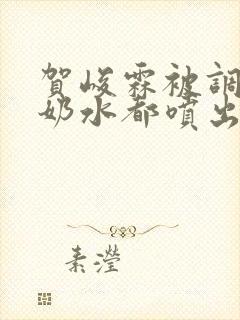 賀峻霖被調
奶水都噴出
素瀅